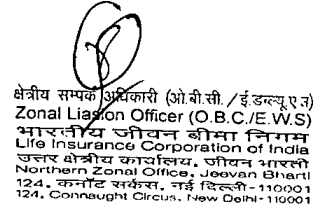 क्षेत्रीय सम्पर्क अधिकारी (ओ.बी.सी./ई.डब्ल्यू.एस)
Zonal Liasion Officer (O.B.C./E.W.S)
भारतीय जीवन बीमा निगम
Life Insurance Corporation of India
उत्तर क्षेत्रीय कार्यालय, जीवन भारती
Northern Zonal Office, Jeevan Bharti
124, कनॉट सर्कस, नई दिल्ली-110001
124, Connaught Circus, New Delhi-110001